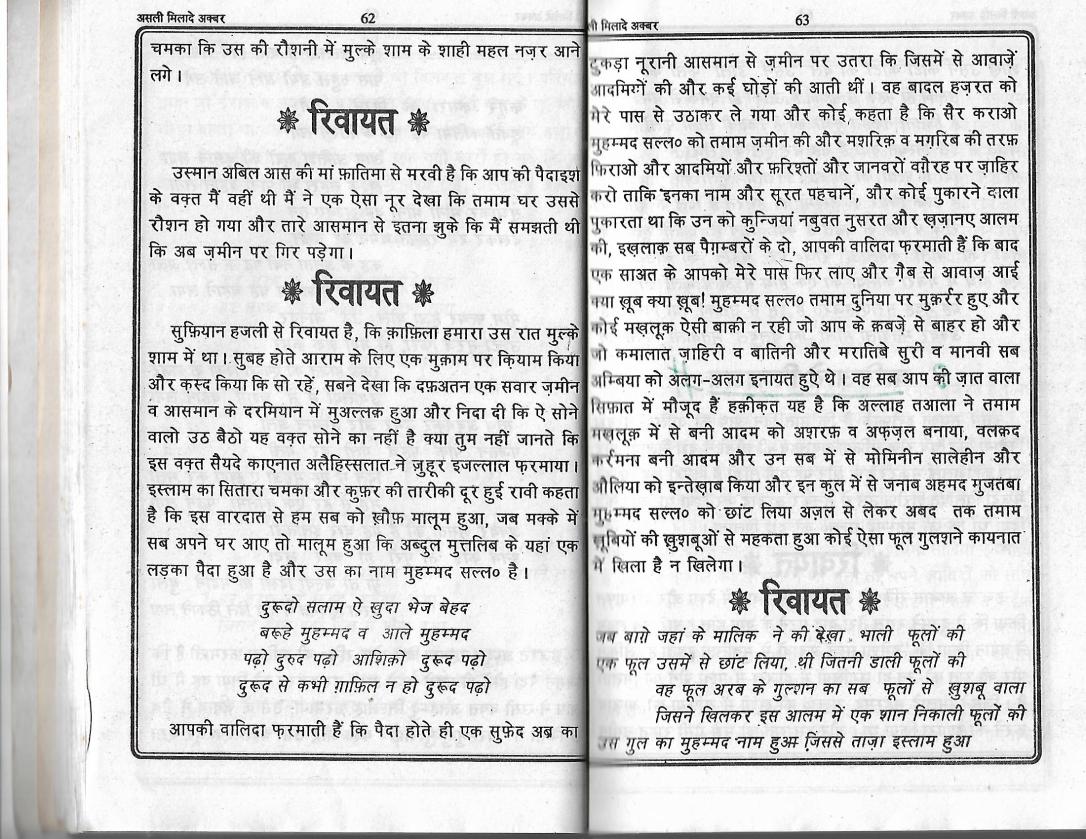 असली मिलादे अक्बर 62
चमका कि उस की रौशनी में मुल्के शाम के शाही महल नज़र आने
लगे।
रिवायत
उस्मान अबिल आस की मां फ़ातिमा से मरवी है कि आप की पैदाइश
के वक़्त मैं वहीं थी मैं ने एक ऐसा नूर देखा कि तमाम घर उससे
रौशन हो गया और तारे आसमान से इतना झुके कि मैं समझती थी
कि अब ज़मीन पर गिर पड़ेगा।
रिवायत
सुफ़ियान हजली से रिवायत है, कि क़ाफ़िला हमारा उस रात मुल्के
शाम में था। सुबह होते आराम के लिए एक मुक़ाम पर क़ियाम किया
और क़स्द किया कि सो रहें, सबने देखा कि दफ़अतन एक सवार ज़मीन
व आसमान के दरमियान में मुअल्लक़ हुआ और निदा दी कि ऐ सोने
वालो उठ बैठो यह वक़्त सोने का नहीं है क्या तुम नहीं जानते कि
इस वक़्त सैयदे काएनात अलैहिस्सलात ने ज़ुहूर इजल्लाल फ़रमाया।
इस्लाम का सितारा चमका और कुफ़र की तारीकी दूर हुई रावी कहता
है कि इस वारदात से हम सब को ख़ौफ़ मालूम हुआ, जब मक्के में
सब अपने घर आए तो मालूम हुआ कि अब्दुल मुत्तलिब के यहां एक
लड़का पैदा हुआ है और उस का नाम मुहम्मद सल्ल० है।
दुरूदो सलाम ऐ ख़ुदा भेज बेहद
बरूहे मुहम्मद व आले मुहम्मद
पढ़ो दुरुद पढ़ो आशिक़ो दुरूद पढ़ो
दुरूद से कभी ग़ाफ़िल न हो दुरूद पढ़ो
आपकी वालिदा फ़रमाती हैं कि पैदा होते ही एक सुफ़ेद अब्र का
ली मिलादे अक्बर 63
टुकड़ा नूरानी आसमान से ज़मीन पर उतरा कि जिसमें से आवाज़ें
आदमियों की और कई घोड़ों की आती थीं। वह बादल हज़रत को
मेरे पास से उठाकर ले गया और कोई कहता है कि सैर कराओ
मुहम्मद सल्ल० को तमाम ज़मीन की और मशरिक़ व मग़रिब की तरफ़
फिराओ और आदमियों और फ़रिश्तों और जानवरों वग़ैरह पर ज़ाहिर
करो ताकि इनका नाम और सूरत पहचानें, और कोई पुकारने दाला
पुकारता था कि उन को कुन्जियां नबुवत नुसरत और ख़ज़ानए आलम
की, इख़लाक़ सब पैग़म्बरों के दो, आपकी वालिदा फ़रमाती हैं कि बाद
एक साअत के आपको मेरे पास फिर लाए और ग़ैब से आवाज़ आई
क्या ख़ूब क्या ख़ूब! मुहम्मद सल्ल० तमाम दुनिया पर मुक़र्रर हुए और
कोई मख़लूक़ ऐसी बाक़ी न रही जो आप के क़बज़े से बाहर हो और
जो कमालात ज़ाहिरी व बातिनी और मरातिबे सुरी व मानवी सब
अम्बिया को अलग-अलग इनायत हुऐ थे। वह सब आप की ज़ात वाला
सिफ़ात में मौजूद हैं हक़ीक़त यह है कि अल्लाह तआला ने तमाम
मख़लूक़ में से बनी आदम को अशरफ़ व अफ़ज़ल बनाया, वलक़द
कर्रमना बनी आदम और उन सब में से मोमिनीन सालेहीन और
औलिया को इन्तेख़ाब किया और इन कुल में से जनाब अहमद मुजतबा
मुहम्मद सल्ल० को छांट लिया अज़ल से लेकर अबद तक तमाम
ख़ूबियों की ख़ुशबूओं से महकता हुआ कोई ऐसा फूल गुलशने कायनात
में खिला है न खिलेगा।
रिवायत
जब बाग़े जहां के मालिक ने की देखा भाली फूलों की
एक फूल उसमें से छांट लिया, थी जितनी डाली फूलों की
वह फूल अरब के गुल्शन का सब फूलों से ख़ुशबू वाला
जिसने खिलकर इस आलम में एक शान निकाली फूलों की
उस गुल का मुहम्मद नाम हुआ जिससे ताज़ा इस्लाम हुआ